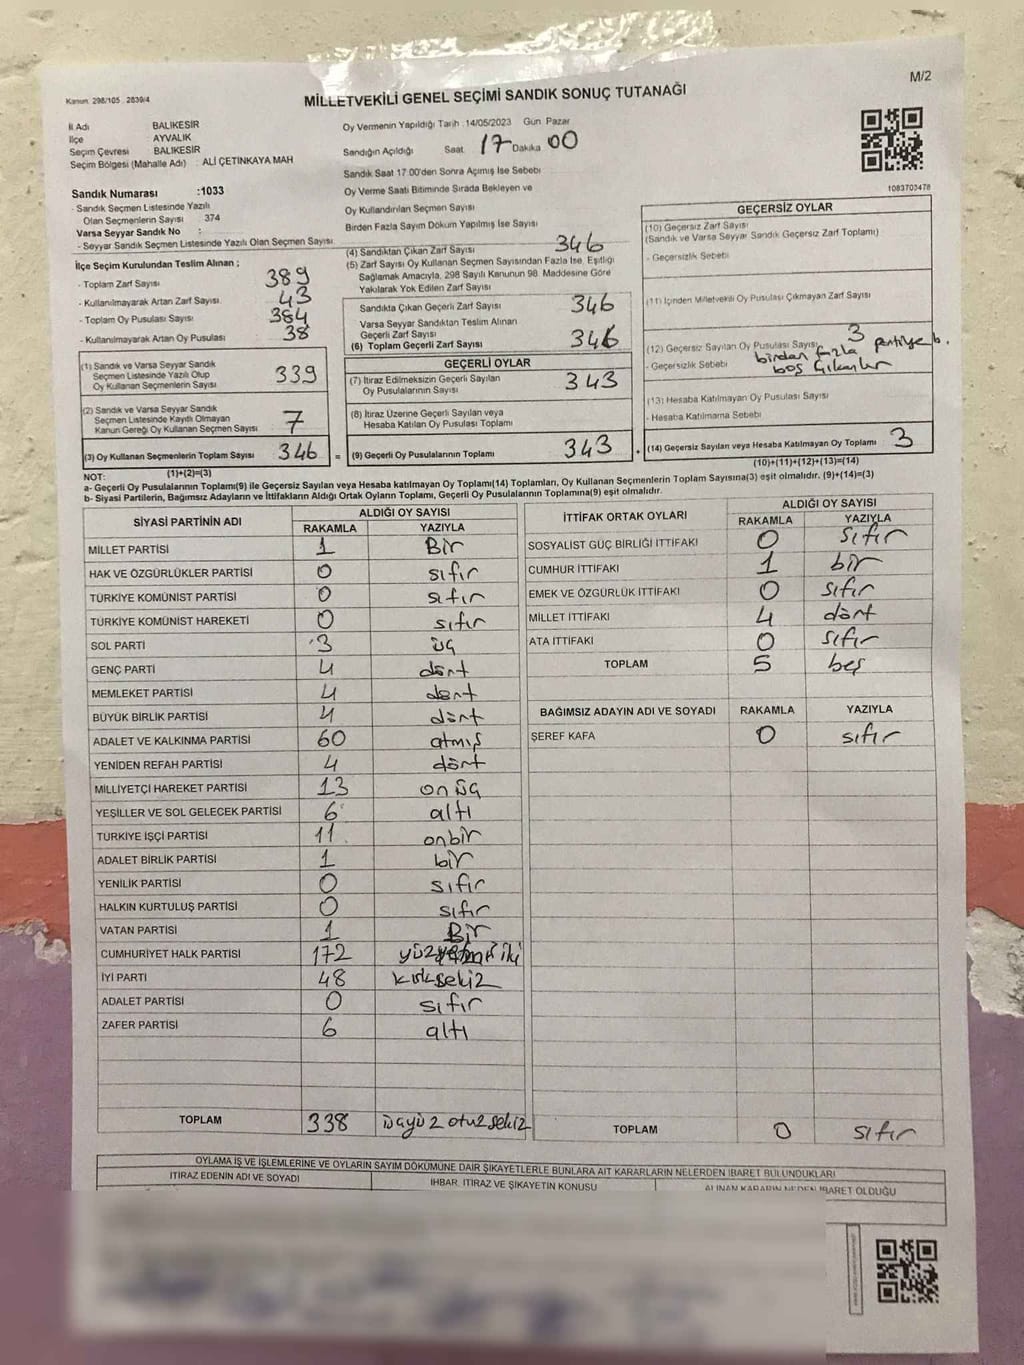 M/2
Kanun: 298/105 , 2839/4
MİLLETVEKİLİ GENEL SEÇİMİ SANDIK SONUÇ TUTANAĞI
İl Adı BALIKESİR
İlçe : AYVALIK
Seçim Çevresi : BALIKESİR
Seçim Bölgesi (Mahalle Adı) : ALİ ÇETİNKAYA MAH
Sandık Numarası :1033
- Sandık Seçmen Listesinde Yazılı
Olan Seçmenlerin Sayısı : 374
Varsa Seyyar Sandık No :
- Seyyar Sandık Seçmen Listesinde Yazılı Olan Seçmen Sayısı:
Oy Vermenin Yapıldığı Tarih : 14/05/2023 Gün Pazar
Sandığın Açıldığı Saat 17 Dakika 00
Sandık Saat 17.00'den Sonra Açımış İse Sebebi
Oy Verme Saati Bitiminde Sırada Bekleyen ve
Oy Kullandırılan Seçmen Sayısı
Birden Fazla Sayım Döküm Yapılmış İse Sayısı
1083703478
İlçe Seçim Kurulundan Teslim Alınan ;
- Toplam Zarf Sayısı 389
- Kullanılmayarak Artan Zarf Sayısı 43
- Toplam Oy Pusulası Sayısı 384
- Kullanılmayarak Artan Oy Pusulası 38
(1) Sandık ve Varsa Seyyar Sandık
Seçmen Listesinde Yazılı Olup
Oy Kullanan Seçmenlerin Sayısı 339
(2) Sandık ve Varsa Seyyar Sandık
Seçmen Listesinde Kayıtlı Olmayan
Kanun Gereği Oy Kullanan Seçmen Sayısı 7
(3) Oy Kullanan Seçmenlerin Toplam Sayısı 346 =
(1)+(2)=(3)
(4) Sandıktan Çıkan Zarf Sayısı 346
(5) Zarf Sayısı Oy Kullanan Seçmen Sayısından Fazla İse, Eşitliği
Sağlamak Amacıyla, 298 Sayılı Kanunun 98. Maddesine Göre
Yakılarak Yok Edilen Zarf Sayısı
Sandıkta Çıkan Geçerli Zarf Sayısı 346
Varsa Seyyar Sandıktan Teslim Alınan
Geçerli Zarf Sayısı
(6) Toplam Geçerli Zarf Sayısı 346
GEÇERLİ OYLAR
(7) İtiraz Edilmeksizin Geçerli Sayılan
Oy Pusulalarının Sayısı 343
(8) İtiraz Üzerine Geçerli Sayılan veya
Hesaba Katılan Oy Pusulası Toplamı
(9) Geçerli Oy Pusulalarının Toplamı 343
GEÇERSİZ OYLAR
(10) Geçersiz Zarf Sayısı
(Sandık ve Varsa Seyyar Sandık Geçersiz Zarf Toplamı)
- Geçersizlik Sebebi
(11) İçinden Milletvekili Oy Pusulası Çıkmayan Zarf Sayısı
(12) Geçersiz Sayılan Oy Pusulası Sayısı 3
- Geçersizlik Sebebi birden fazla partiye b.
boş çıkanlar
(13) Hesaba Katılmayan Oy Pusulası Sayısı
- Hesaba Katılmama Sebebi
(14) Geçersiz Sayılan veya Hesaba Katılmayan Oy Toplamı 3
(10)+(11)+(12)+(13)=(14)
NOT:
a- Geçerli Oy Pusulalarının Toplamı(9) ile Geçersiz Sayılan veya Hesaba katılmayan Oy Toplamı(14) Toplamları, Oy Kullanan Seçmenlerin Toplam Sayısına(3) eşit olmalıdır. (9)+(14)=(3)
b- Siyasi Partilerin, Bağımsız Adayların ve İttifakların Aldığı Ortak Oyların Toplamı, Geçerli Oy Pusulalarının Toplamına(9) eşit olmalıdır.
SİYASİ PARTİNİN ADI ALDIĞI OY SAYISI
RAKAMLA YAZIYLA
MİLLET PARTİSİ 1 Bir
HAK VE ÖZGÜRLÜKLER PARTİSİ 0 sıfır
TÜRKİYE KOMÜNİST PARTİSİ 0 sıfır
TÜRKİYE KOMÜNİST HAREKETİ 0 sıfır
SOL PARTİ 3 üç
GENÇ PARTİ 4 dört
MEMLEKET PARTİSİ 4 dört
BÜYÜK BİRLİK PARTİSİ 4 dört
ADALET VE KALKINMA PARTİSİ 60 atmış
YENİDEN REFAH PARTİSİ 4 dört
MİLLİYETÇİ HAREKET PARTİSİ 13 on üç
YEŞİLLER VE SOL GELECEK PARTİSİ 6 altı
TÜRKİYE İŞÇİ PARTİSİ 11 onbir
ADALET BİRLİK PARTİSİ 1 bir
YENİLİK PARTİSİ 0 sıfır
HALKIN KURTULUŞ PARTİSİ 0 sıfır
VATAN PARTİSİ 1 Bir
CUMHURİYET HALK PARTİSİ 172 yüzyetmiş iki
İYİ PARTİ 48 kırksekiz
ADALET PARTİSİ 0 sıfır
ZAFER PARTİSİ 6 altı
TOPLAM 338 üçyüz otuz sekiz
İTTİFAK ORTAK OYLARI ALDIĞI OY SAYISI
RAKAMLA YAZIYLA
SOSYALİST GÜÇ BİRLİĞİ İTTİFAKI 0 sıfır
CUMHUR İTTİFAKI 1 bir
EMEK VE ÖZGÜRLÜK İTTİFAKI 0 sıfır
MİLLET İTTİFAKI 4 dört
ATA İTTİFAKI 0 sıfır
TOPLAM 5 beş
BAĞIMSIZ ADAYIN ADI VE SOYADI RAKAMLA YAZIYLA
ŞEREF KAFA 0 sıfır
TOPLAM 0 sıfır
OYLAMA İŞ VE İŞLEMLERİNE VE OYLARIN SAYIM DÖKÜMÜNE DAİR ŞİKAYETLERLE BUNLARA AİT KARARLARIN NELERDEN İBARET BULUNDUKLARI
İTİRAZ EDENİN ADI VE SOYADI İHBAR, İTİRAZ VE ŞİKAYETİN KONUSU ALINAN KARARIN NEDEN İBARET OLDUĞU